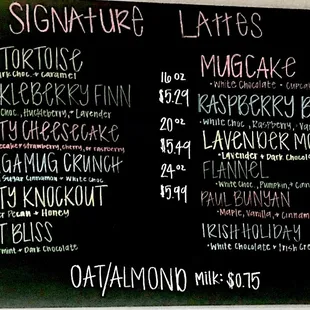 SIGNATURE LATTES
TORTOISE
Dark Choc. + Caramel
KLEBERRY FINN
Choc, Huckleberry, + Lavender
TY CHEESECAKE
cheesecake + strawberry, cherry, or raspberry
AGAMUG CRUNCH
Sugar Cinnamon + White Choc
TY KNOCKOUT
Pecan + Honey
T BLISS
mint + Dark Chocolate
16oz
$5.29
20oz
$5.49
24oz
$5.99
MUGCAKE
•White Chocolate • Cupca
RASPBERRY B
•White Choc, Raspberry, Va
LAVENDER MO
•Lavender + Dark Chocola
FLANNEL
•White Choc, Pumpkin, + Cin
PAUL BUNYAN
•Maple, Vanilla, + Cinnam
IRISH HOLIDAY
•White Chocolate + Irish Cre
OAT/ALMOND Milk: $0.75